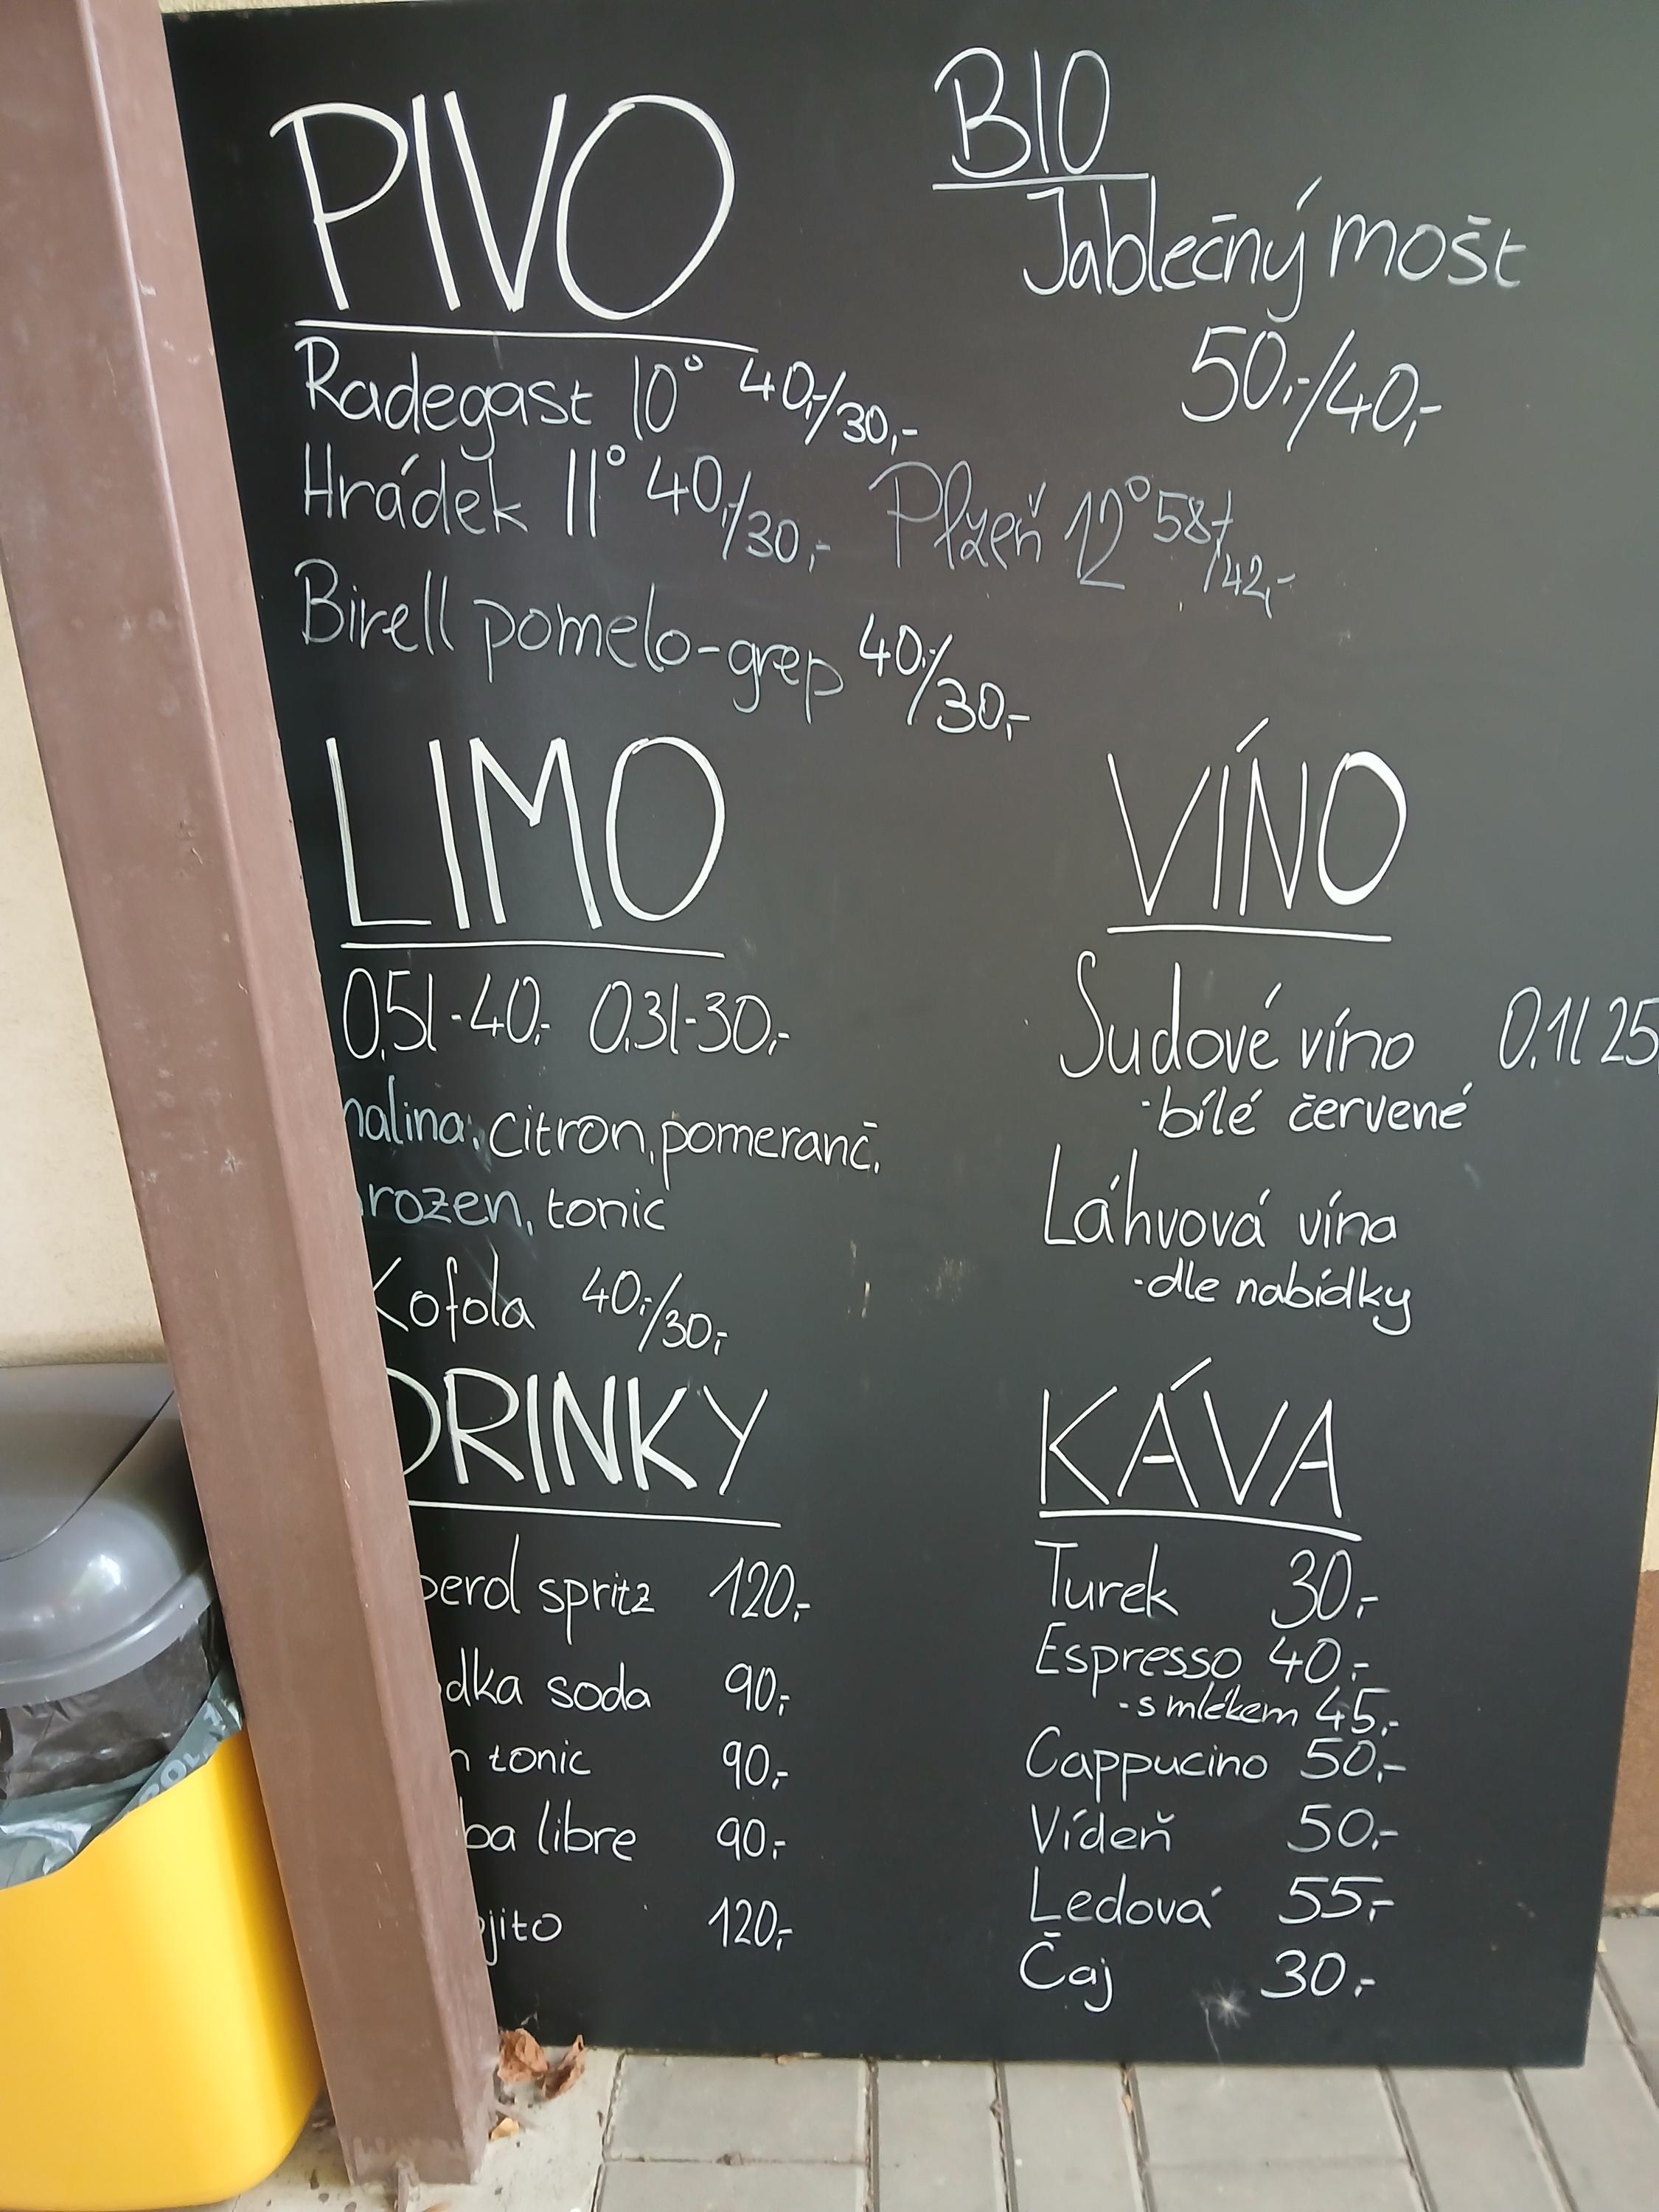 PIVO
Radegast 10° 40,-/30,-
Hrádek 11° 40,-/30,- Plzeň 12° 58,-/42,-
Birell pomelo-grep 40,-/30,-
BIO
Jablečný mošt
50,-/40,-
LIMO
0,5l-40,- 0,3l-30,-
malina, citron, pomeranč,
hrozen, tonic
Kofola 40,-/30,-
VÍNO
Sudové víno 0,1l 25
-bílé červené
Láhvová vína
-dle nabídky
DRINKY
perol spritz 120,-
dka soda 90,-
n tonic 90,-
ba libre 90,-
ojito 120,-
KÁVA
Turek 30,-
Espresso 40,-
-s mlékem 45,-
Cappucino 50,-
Vídeň 50,-
Ledová 55,-
Čaj 30,-